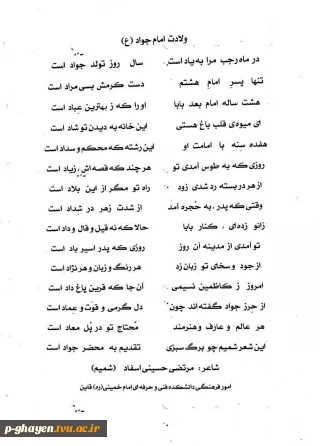 ولادت امام جواد (ع)
در ماه رجب مرا به یاد است سال روز تولد جواد است
تنها پسرِ امامِ هشتم دست کرمش بسی مراد است
هشت ساله امام بعد بابا او را که ز بهترین عباد است
ای میوه‌ی قلب باغ هستی این خانه به دیدن تو شاد است
هفده سنه با امامت او این رشته که محکم و سداد است
روزی که به طوس آمدی تو هر چند که قصه اش زیاد است
از هر در بسته رد شدی زود راه تو مگر از این بلاد است
وقتی که پدر، به حُجره آمد از شدت زهر در شداد است
زانو زده‌ای ، کنار بابا حالا که نه قیل و قال و داد است
تو آمدی از مدینه آن روز روزی که پدر اسیر باد است
از جود و سخای تو زبان زد هر رنگ و زبان و هر نژاد است
امروز ز کاظمین نسیمی آن جا که قرین باغ داد است
از حرز جواد گفته اند چون دل گرمی و قوت و عماد است
هر عالم و عارف و هنرمند محتاج تو در پُل معاد است
این شعر شمیم چو برگ سبزی تقدیم به محضر جواد است
شاعر: مرتضی حسینی اسفاد (شمیم)
امور فرهنگی دانشکده فنی و حرفه ای امام خمینی (ره) قاین
p-ghayen.tvu.ac.ir